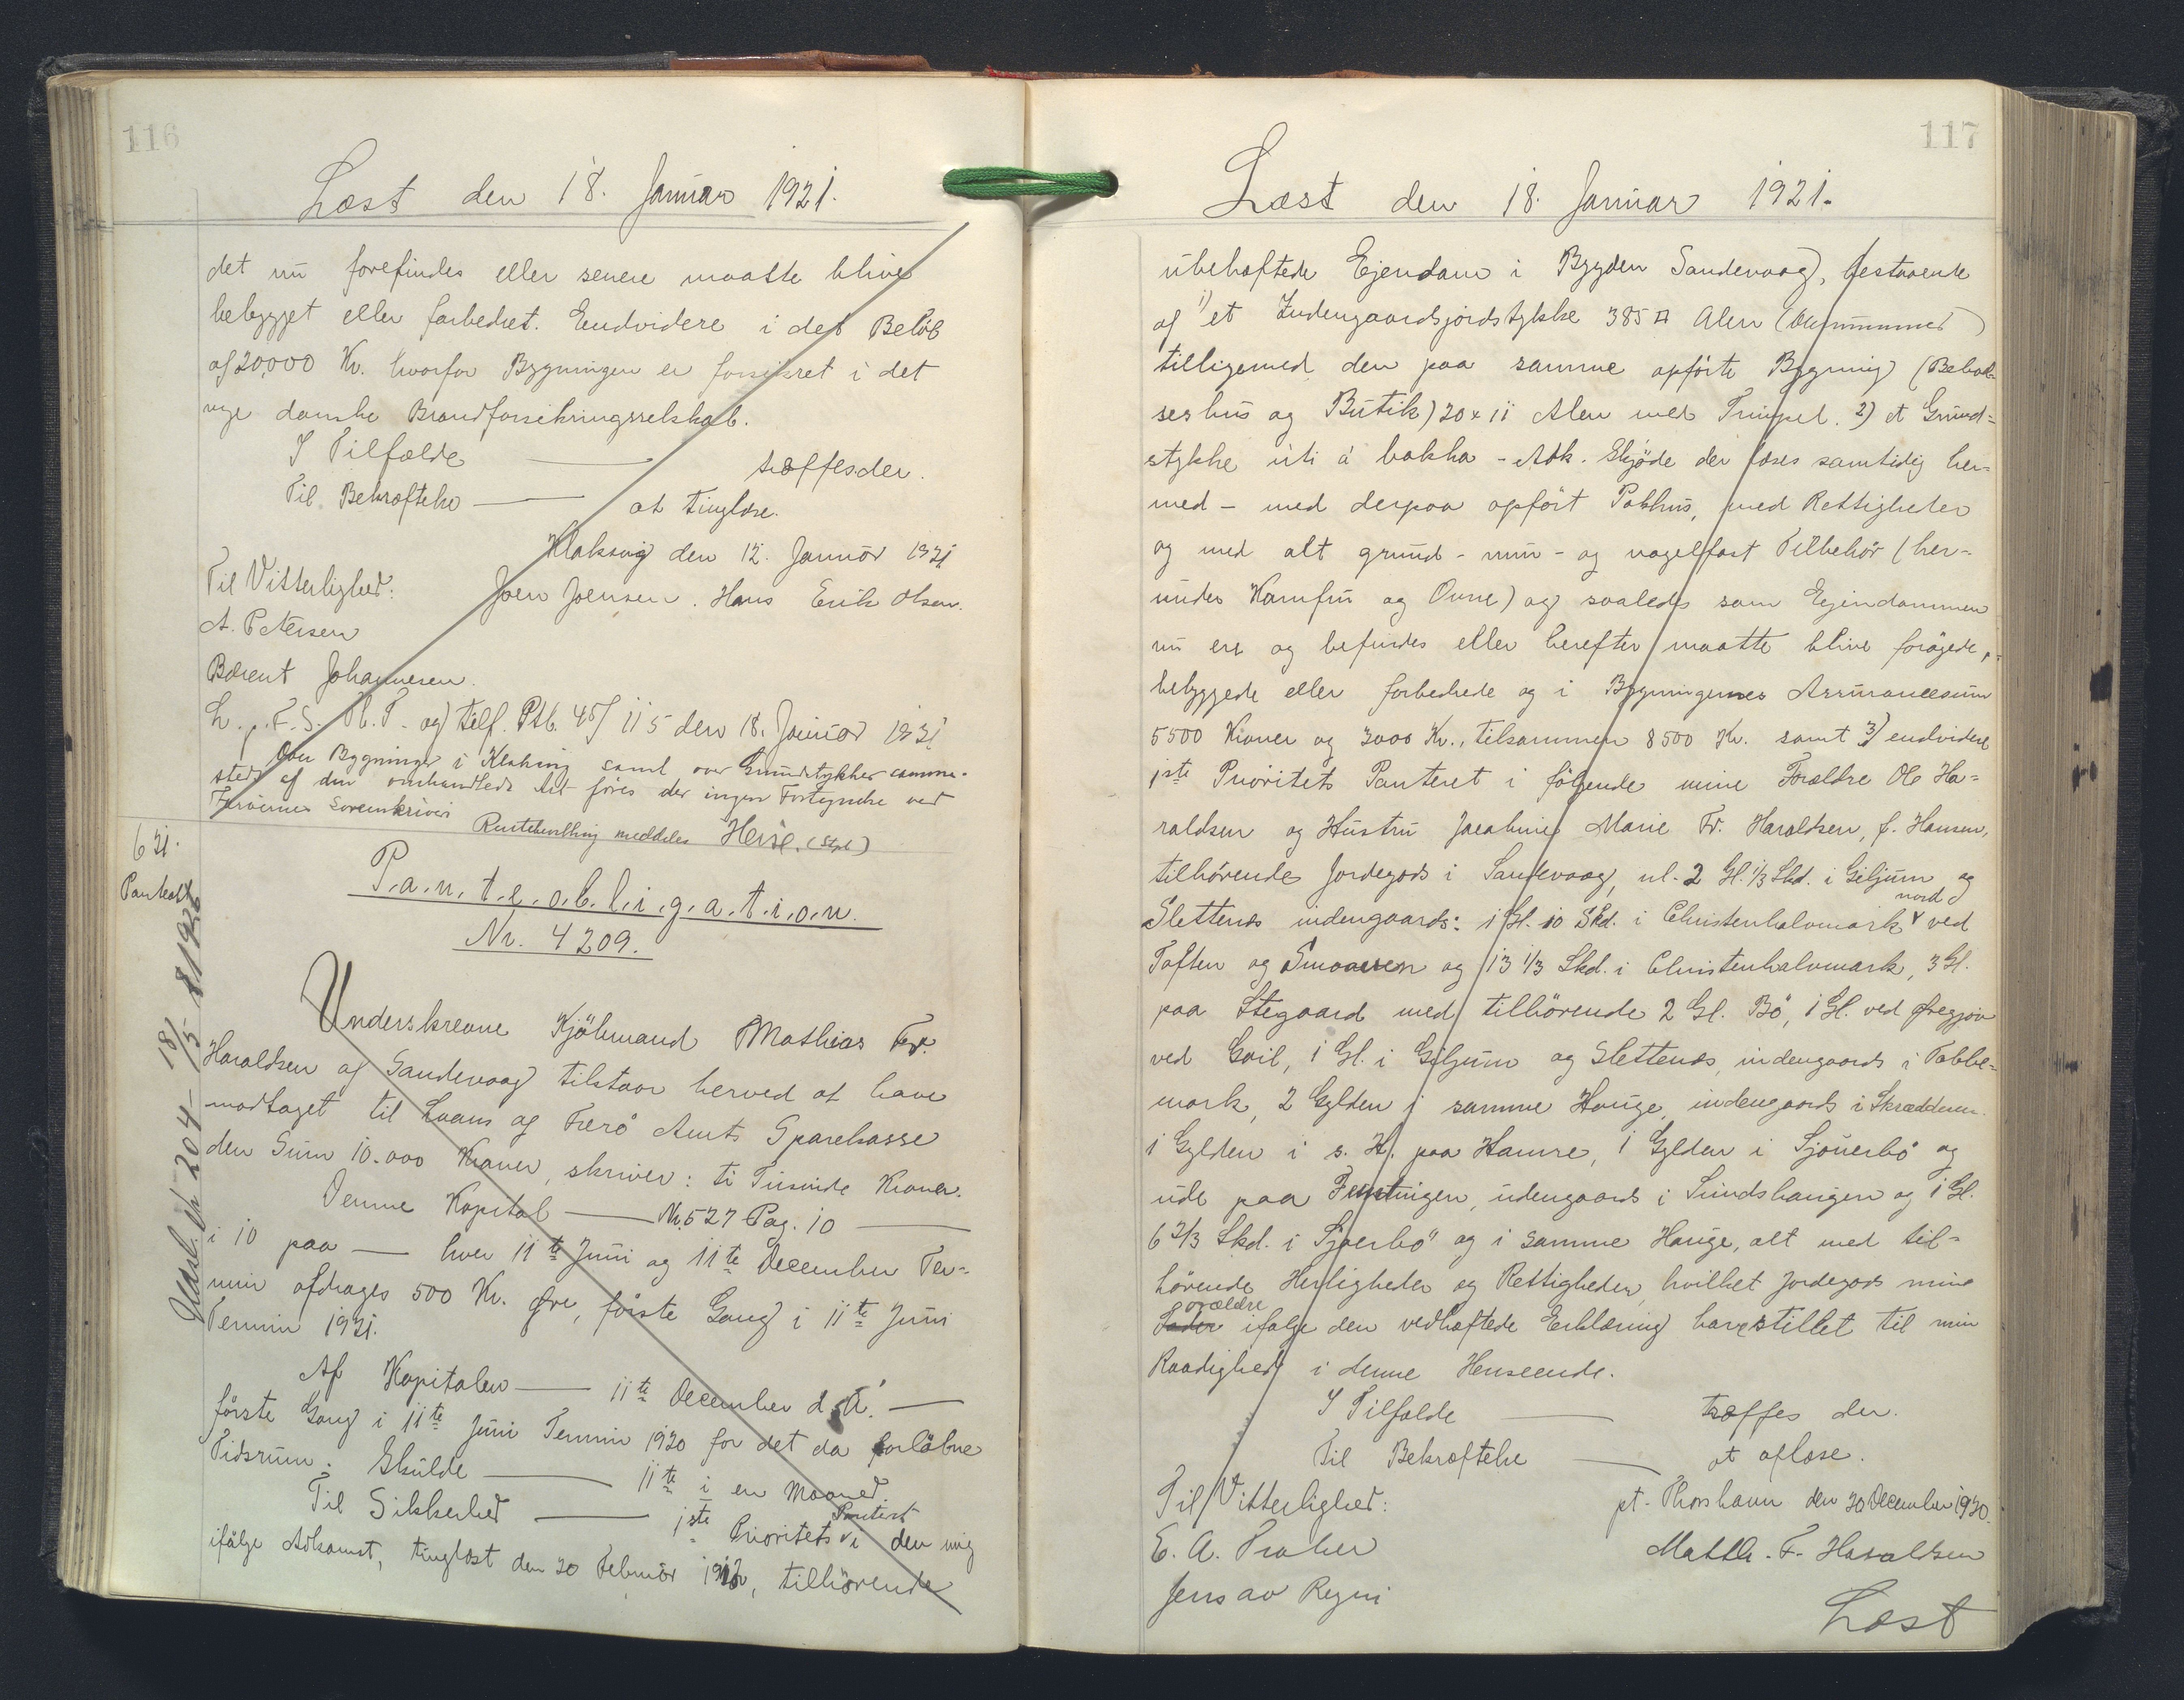 116
Læst den 18. Januar 1921.
det nu forefindes eller senere maatte blive
bebygget eller forbedret. Endvidere i det Beløb
af 20,000 Kr. hvorfor Bygningen er forsikret i det
nye danske Brandforsikringsselskab.
I Tilfælde — træffes der.
Til Bekræftelse — at tinglæse.
Klaksvig den 12. Januar 1921
Til Vitterlighed: Joen Joensen. Hans Erik Olsen.
A. Petersen
Bærent Johannesen.
L. p. F. S. Ob. T. og Self. Ptb. 45/115 den 18. Januar 1921
Over Bygninger i Klaksvig samt over Grundstykker samme-
steds af den omhandlede Art føres der ingen Fortegnelse ved
Færøernes Sorenskriveri
Rentebevilling meddeles Heise. (Sigl)
6 21.
Panteobl.
P.a.n.t.e.o.b.l.i.g.a.t.i.o.n.
Nr. 4209.
Underskrevne Kjøbmand Mathias Fr.
Haraldsen af Sandevaag tilstaar herved at have
modtaget til Laans af Færø Amts Sparekasse
den Sum 10.000 Kroner, skriver: ti Tusinde Kroner.
Denne Kapital — Nr. 527 Pag. 10 —
i 10 paa — hver 11te Juni og 11te December Ter-
min afdrages 500 Kr. Øre, første Gang i 11te Juni
Termin 1921.
Af Kapitalen — 11te December d. A. —
første Gang i 11te Juni Termin 1920 for det da forløbne
Tidsrum. Skulde — 11te i en Maaned.
Til Sikkerhed — 1ste Prioritets Panteret i den mig
ifølge Adkomst, tinglæst den 20 Februar tilhørende
117
Læst den 18. Januar 1921.
ubehæftede Ejendom i Bygden Sandevaag, bestaaende
af 1) et Indengaardsjordstykke 385 □ Alen
tilligemed den paa samme opførte Bygning (Beboel-
seshus og Butik) 20 x 11 Alen med 2) et Grund-
stykke uti á bakka - Adk. Skjøde der læses samtidig her-
med - med derpaa opført Pakhus, med Rettigheder
og med alt grund- mur- og nagelfast Tilbehør (her-
under Komfur og Ovne) og saaledes som Ejendommen
nu ere og befindes eller herefter maatte blive forøgede,
bebyggede eller forbedrede og i Bygningernes Assurancesum
5500 Kroner og 3000 Kr., tilsammen 8500 Kr. samt 3) endvidere
1ste Prioritets Panteret i følgende mine Forældre Ole Ha-
raldsen og Hustru Jacobine Marie Fr. Haraldsen, f. Hansen,
tilhørende Jordegods i Sandevaag, nl. 2 Gl. 1/3 Skd. i Giljum og
Slettenæs indengaards: 1 Gl. 10 Skd. i Christenhalvmark nord ved
Toften og Smoaeren og 13 1/3 Skd. i Christenhalvmark, 3 Gl.
paa Stegaard med tilhørende 2 Gl. Bø, 1 Gl. ved
ved Gail, 1 Gl. i Giljum og Slettenæs, indengaards i Tabbe-
mark, 2 Gylden i samme Hauge, indengaards i Skræddern.
1 Gylden i s. H. paa Hamre, 1 Gylden i Sjouerbø og
ude paa udengaards i Sundshaugen og 1 Gl.
6 2/3 Skd. i Sjoerbø og i samme Hauge, alt med til-
hørende Herligheder og Rettigheder, hvilket Jordegods mine
Forældre ifølge den vedhæftede Erklæring have stillet til min
Raadighed i denne Henseende.
I Tilfælde — træffes der.
Til Bekræftelse — at aflæse.
Til Vitterlighed: pt. Thorshavn den 20 December 1920.
E. A. Matth. F. Haraldsen
Jens av Reyni
Læst